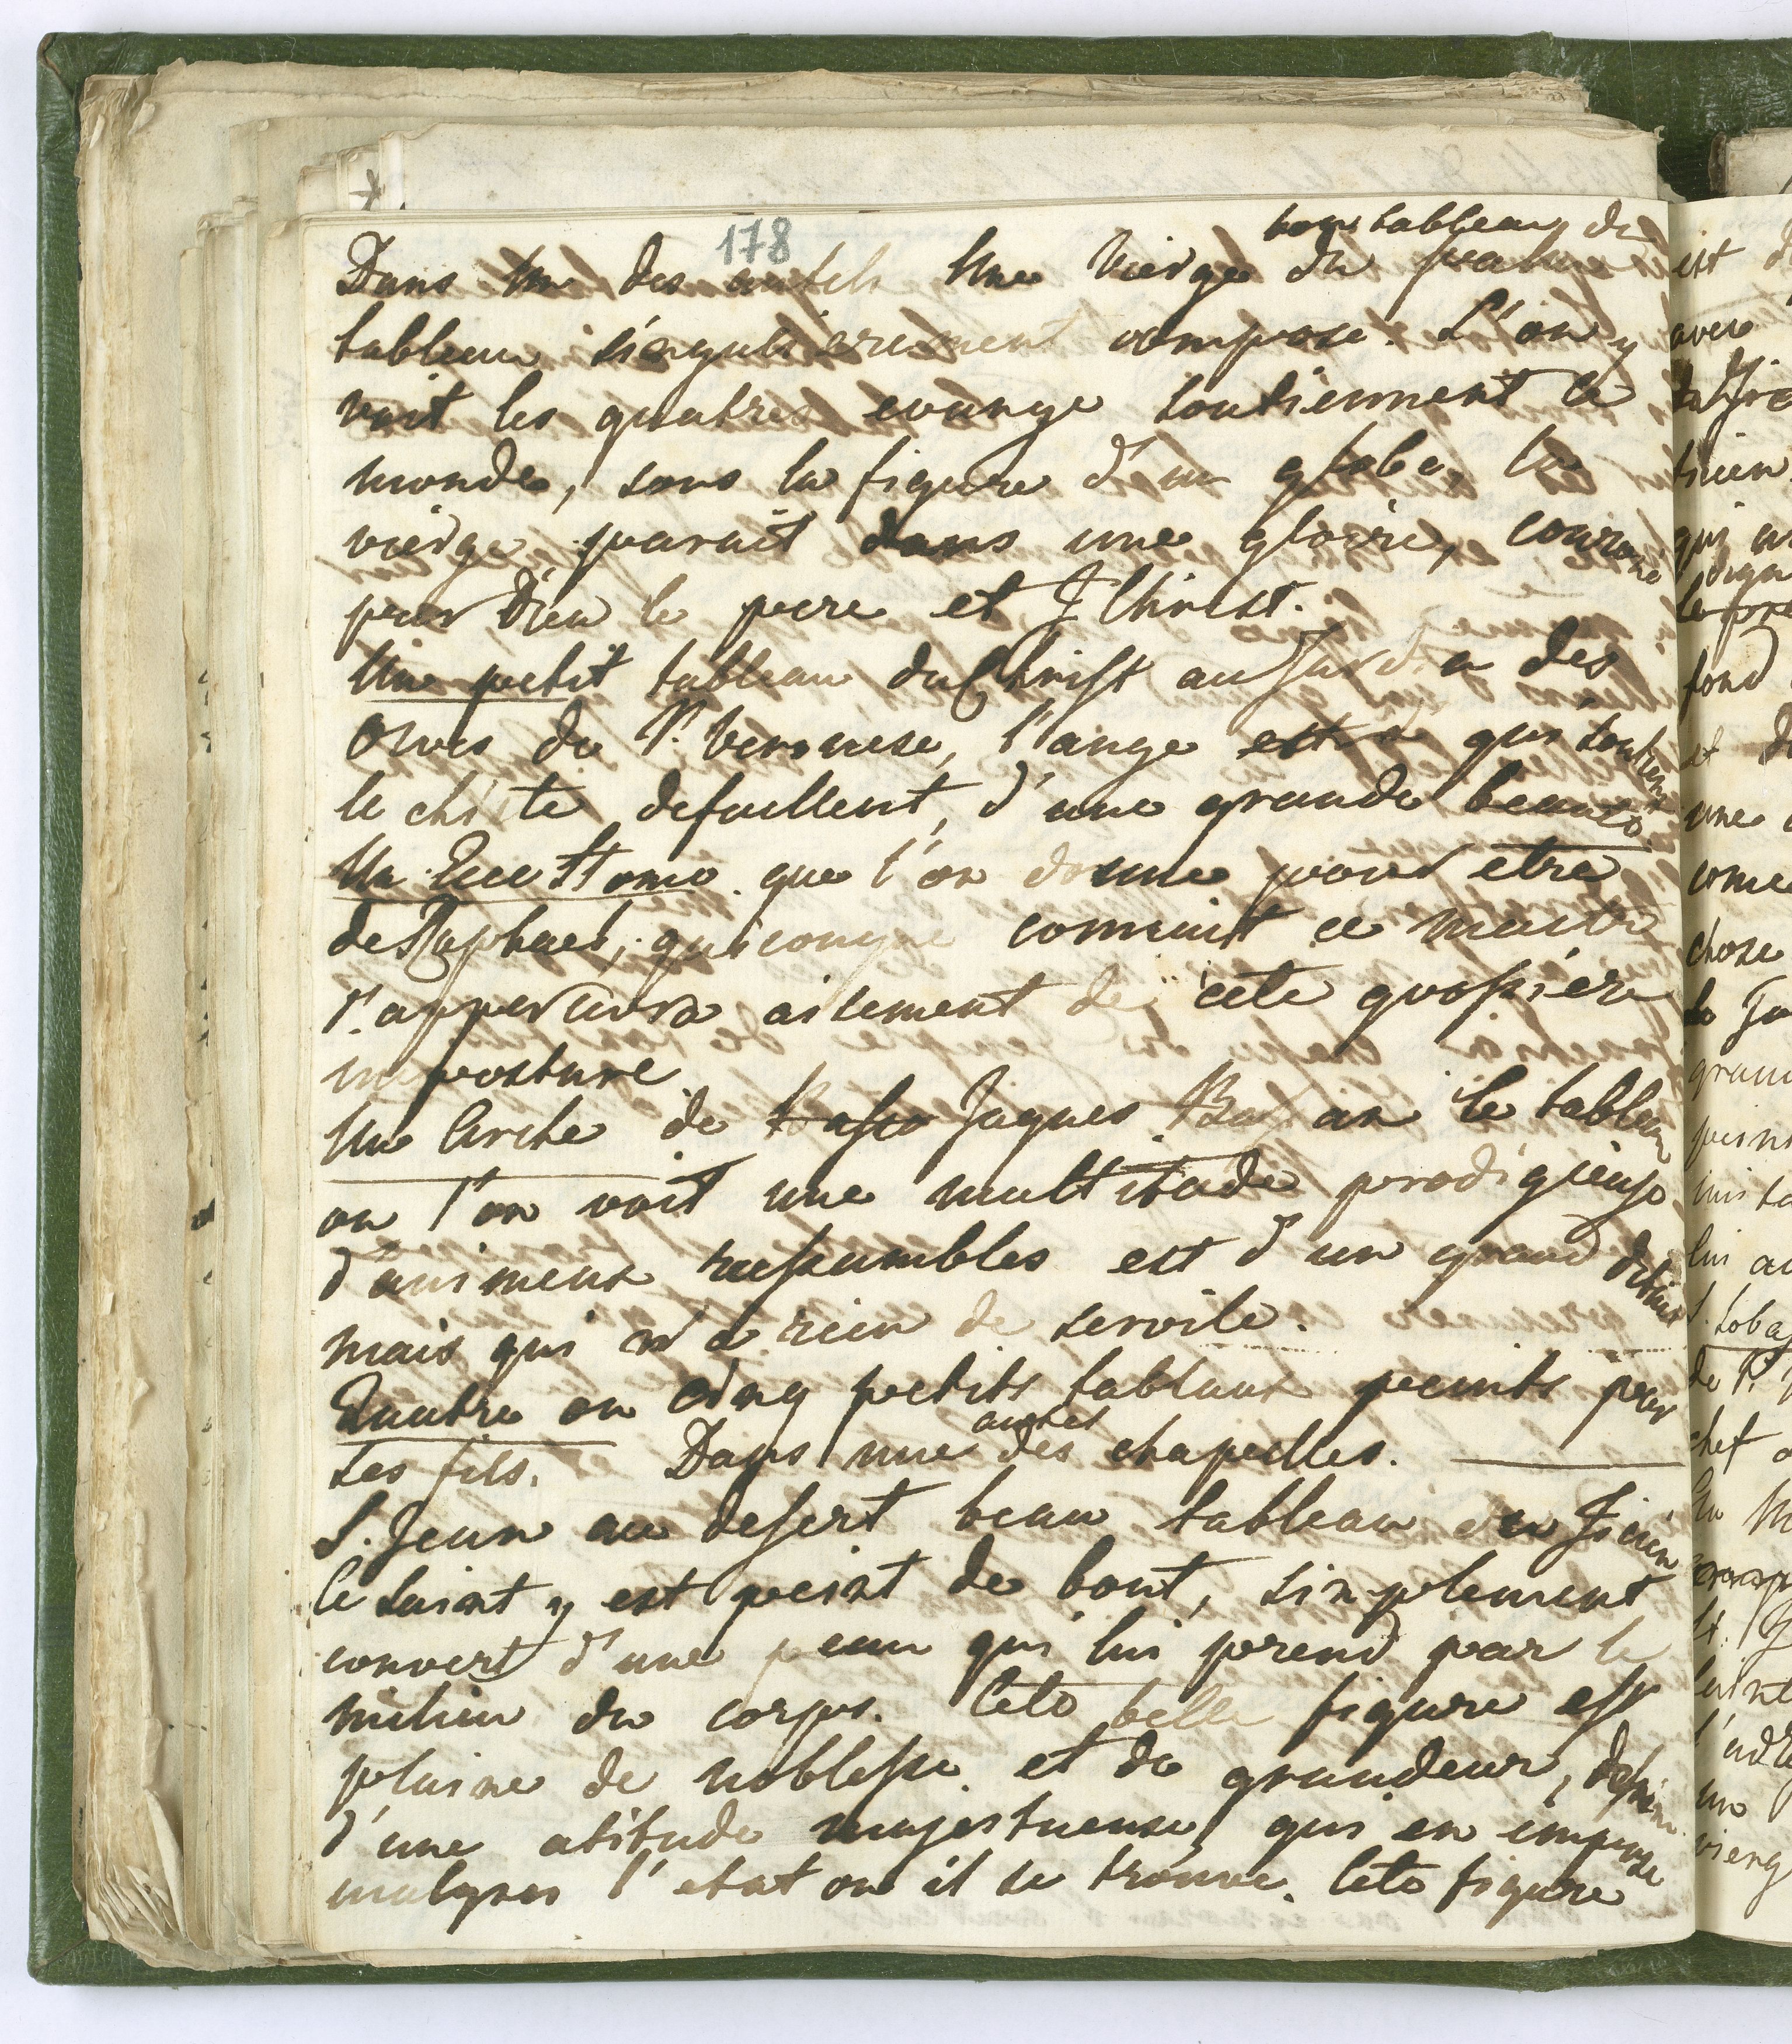 178
bons tableaux du
Dans un des autels une Vierge du palme
tableau singulierement composé. L'on y
voit les quatres evange soutiennent le
monde, sous la figure d'un globe, la
vierge parait dans une gloire, couroné
par Dieu le pere et J Christ.
Un petit tableau du Christ au Jardin des
Olives de P. Veronese, l'ange est qui soutient
le chiste defaillent, d'une grande beauté
Un Ecce Homo que l'on donne pour etre
de Raphael, quiconque connait ce maitre
s'appercevra aisement de cete grossiere
imposture
Un Arche de Jaques Bassan le tableau
ou l'on voit une multitude prodigieuse
d'animeux ressambles est d'un grand detail
mais qui n'a rien de servile.
Quatre ou cinq petits tablaux peints par
autres
ses fils. Dans une des chapelles.
S. Jean au desert beau tableau du Ticien
le saint y est peint de bout, simplement
couvert d'une peau qui lui prend par le
milieu du corps. Cete belle figure est
plaine de noblesse et de grandeur,
d'une atitude majestueuse, qui en impose
malgres l'etat ou il se trouve. Cete figure
est
avec
qui
fond
et
une
come
chose
lui
de P.
chef
un
vierg